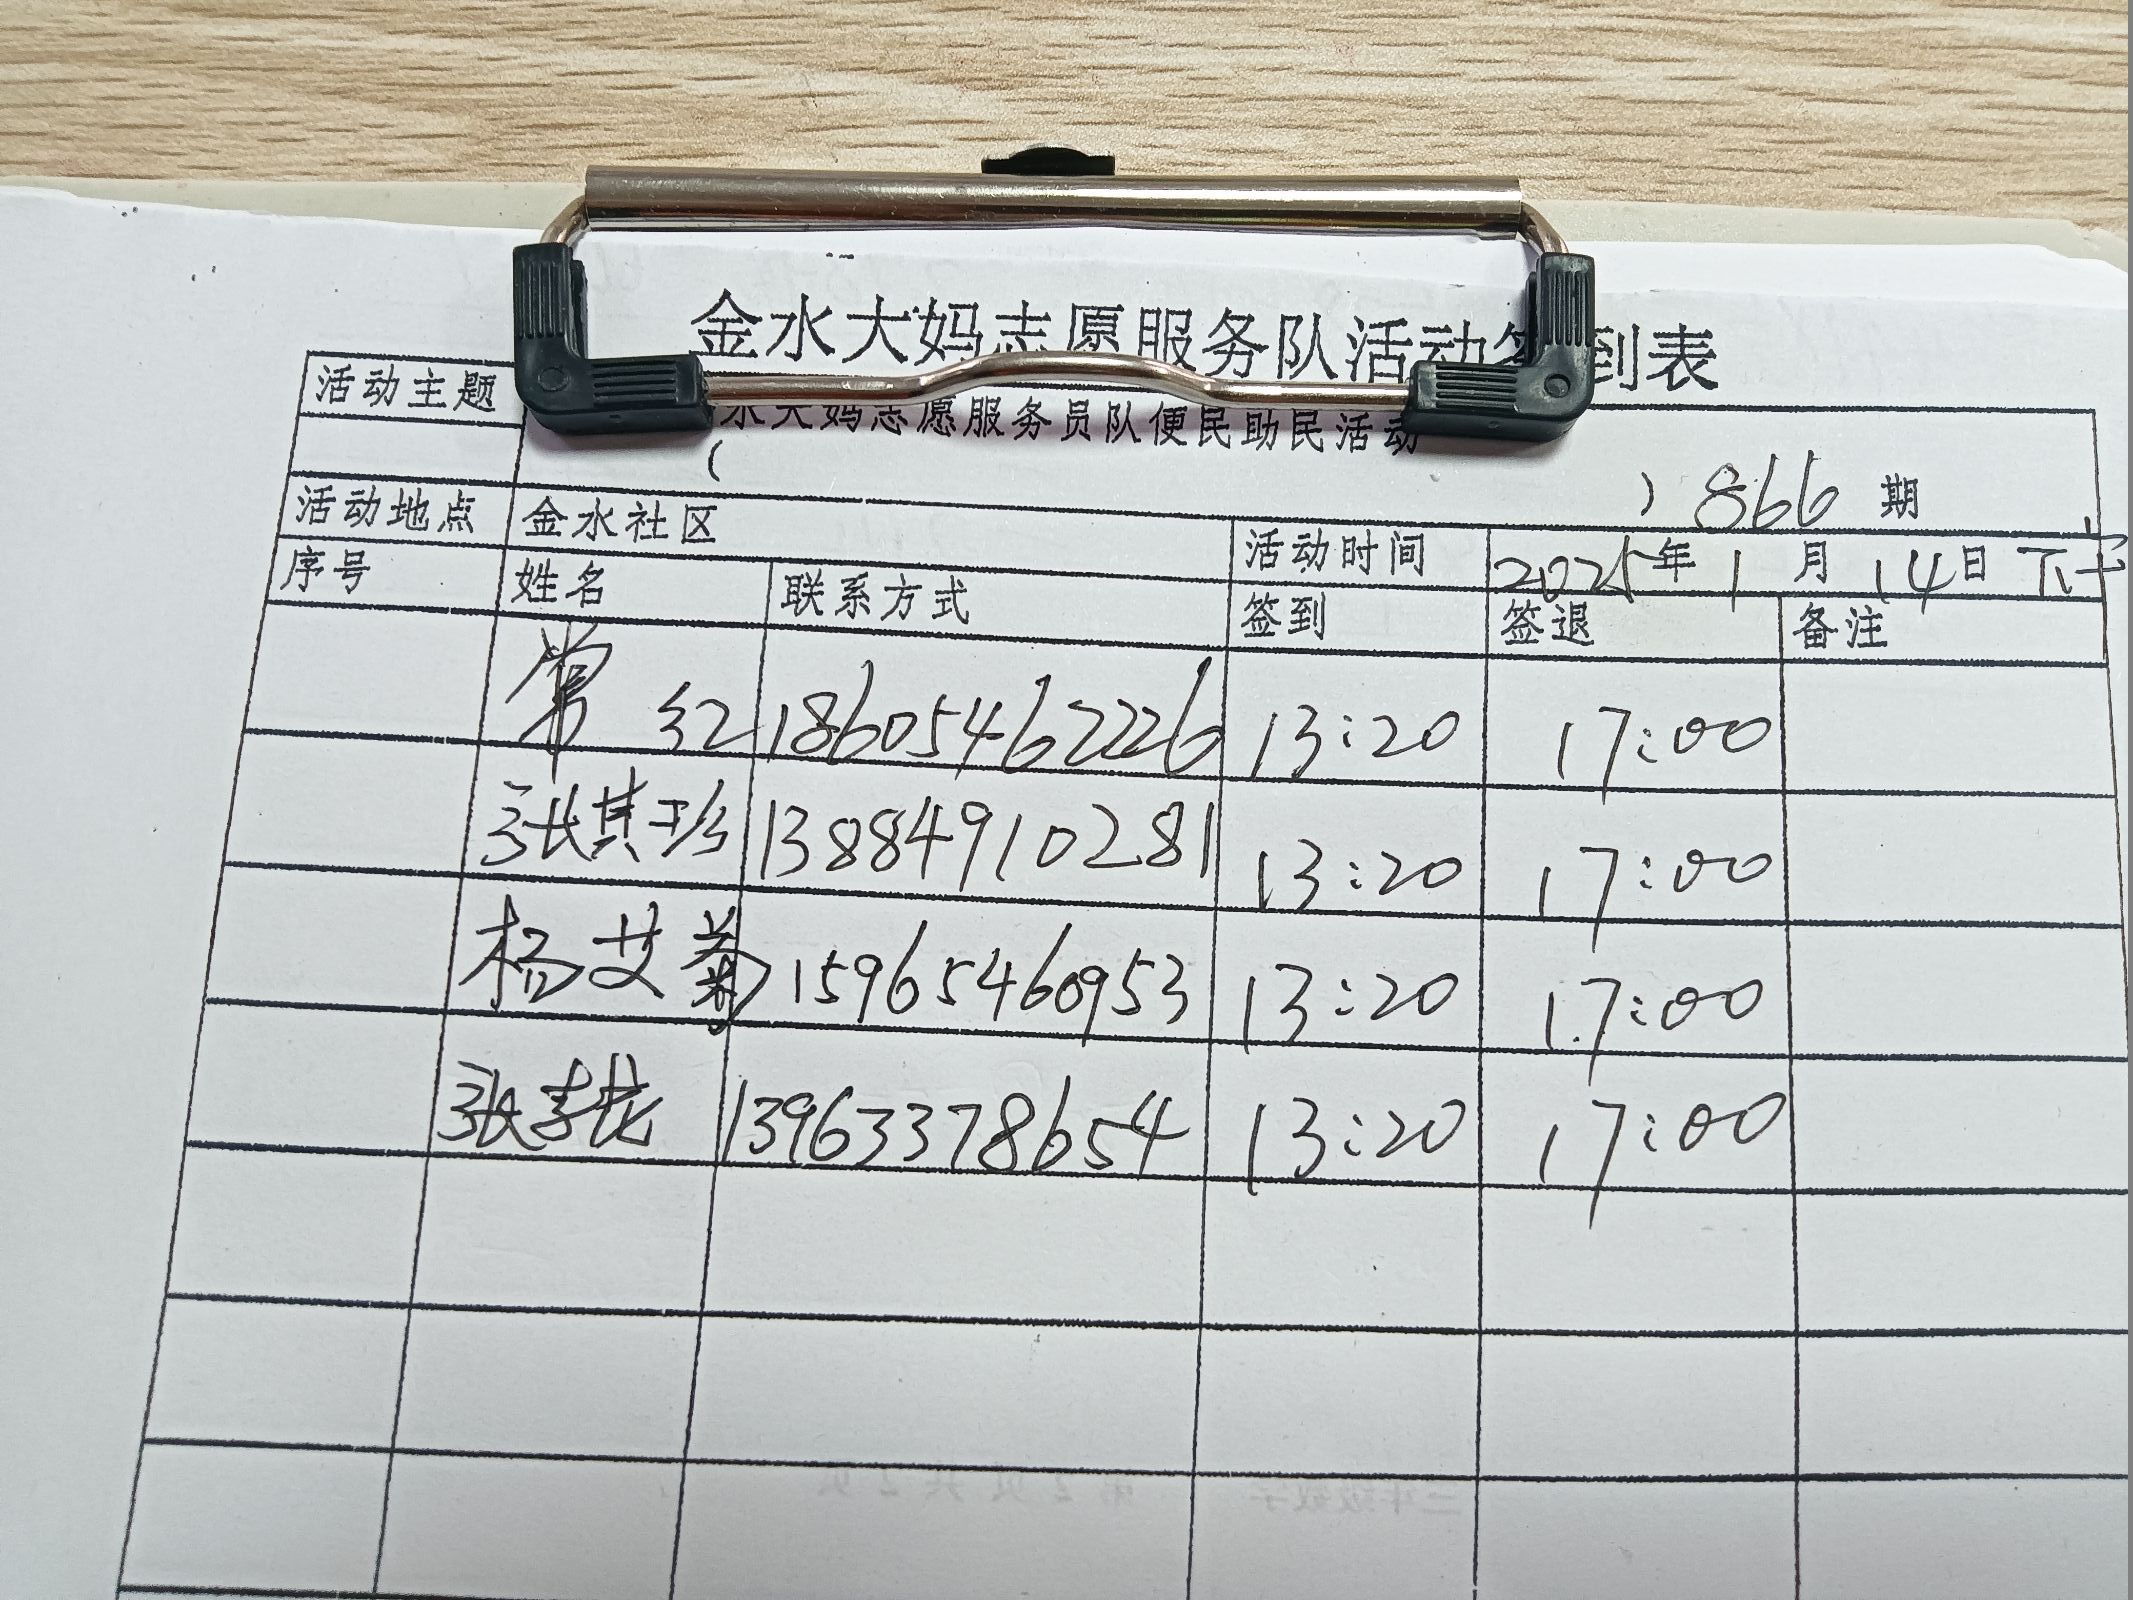 金水大妈志愿服务队活动签到表
活动主题 水大妈志愿服务员队便民助民活动
( ) 866 期
活动地点 金水社区 活动时间 2025年1月14日下午
序号 姓名 联系方式 签到 签退 备注
常红 18605462226 13:20 17:00
张其珍 13884910281 13:20 17:00
杨艾菊 15965460953 13:20 17:00
张 13963378654 13:20 17:00